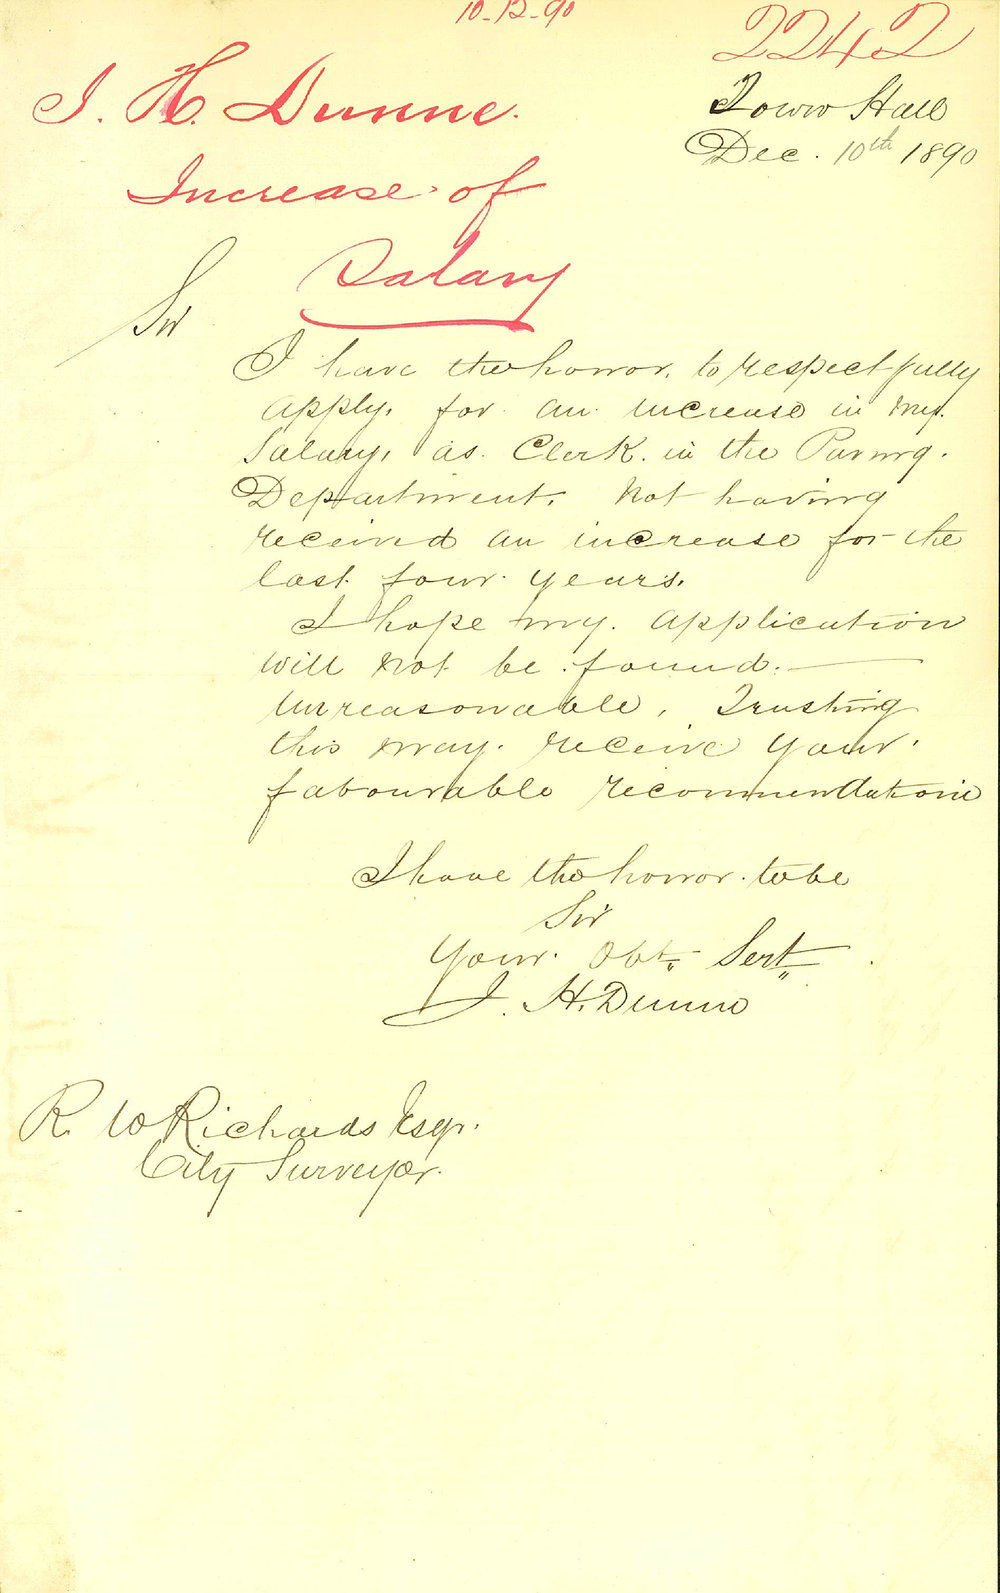 10-12-90
2242
J. H. Dunne.
Town Hall
Dec. 10th 1890
Increase of
Salary
Sir
I have the honor. to respectfully
apply. for an increase in my.
Salary, as Clerk. in the Paving.
Department. Not having
received an increase for the
last four years.
I hope my. application
will not be found.
unreasonable, Trusting
this may. receive your.
favourable recommendation
I have the honor. to be
Sir
Your. Obt. Sert
J. H. Dunne
R. W Richards Esqr.
City Surveyor.